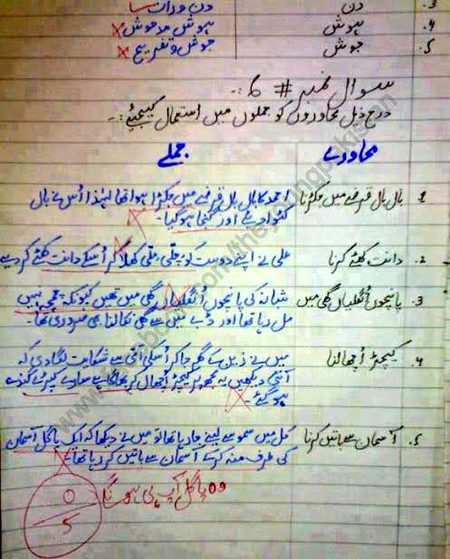 3. دن دن ورات
4. ہوش ہوش مدہوش
5. جوش جوش و تفریح
سوال نمبر # 6:۔
درج ذیل محاوروں کو جملوں میں استعمال کیجیئے:۔
محاورے جملے
1. بال بال قرضے میں جکڑنا احمد کا بال بال قرضے میں جکڑا ہوا تھا لہٰذا اُس نے بال
کٹوا دیے اور گنجا ہو گیا۔
2. دانت کھٹے کرنا علی نے اپنے دوست کو املی کھلا کر اُسکے دانت کھٹے کر دیے
3. پانچوں اُنگلیاں گھی میں شانہ کی پانچوں اُنگلیاں گھی میں تھیں کیونکہ چمچ نہیں
مل رہا تھا اور ڈبے میں سے گھی نکالنا بھی ضروری تھا۔
4. کیچڑ اُچھالنا میں نے زین کے گھر جا کر اُسکی آنٹی سے شکایت لگا دی کہ
آنٹی دیکھیں یہ مجھ پر کیچڑ اُچھال کر بھاگا ہے سارے کپڑے گندے
ہو گئے
5. آسمان سے باتیں کرنا کل میں سموسے لینے جا رہا تھا تو میں نے دیکھا کہ ایک پاگل آسمان
کی طرف منہ کرکے آسمان سے باتیں کر رہا تھا۔
وہ پاگل آپ ہی ہو گا
0
5